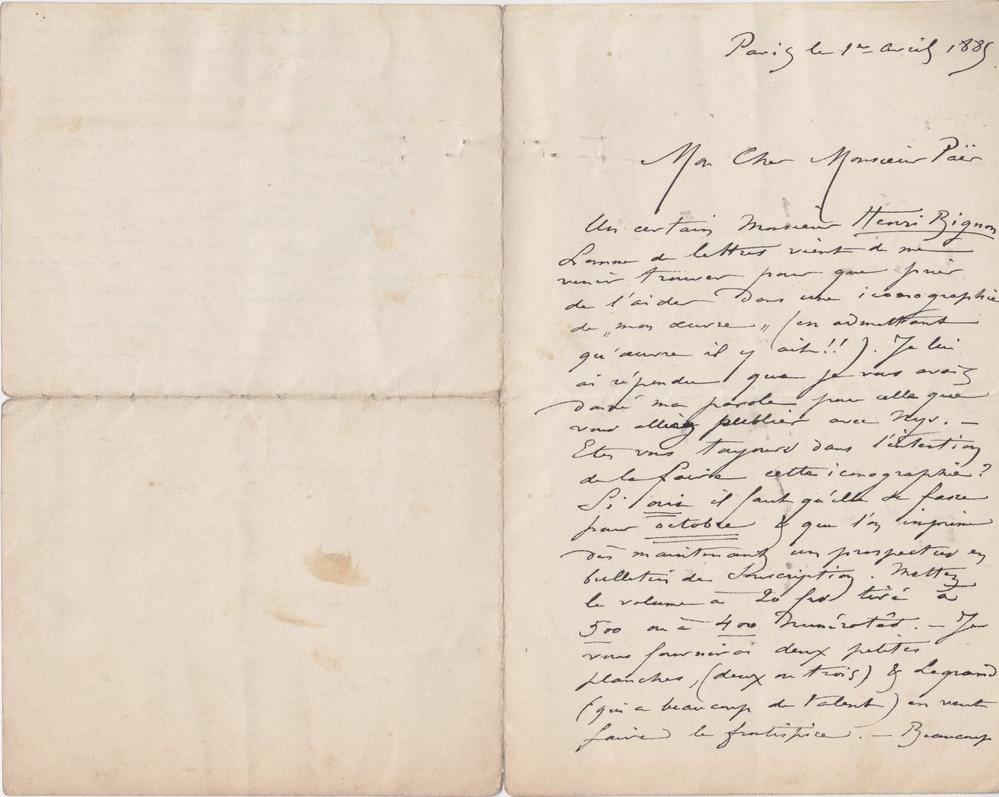 Paris le 1er avril 188
Mon Cher Monsieur Païr
Un certain Monsieur Henri Bignon
homme de lettres vient de me
venir trouver pour que prier
de l'aider dans une iconographie
de „mon œuvre„ (en admettant
qu'œuvre il y ait!!). Je lui
ai répondu que je vous avais
donné ma parole pour celle que
vous alliez publier avec Nys. —
Etes vous toujours dans l'intention
de la faire cette iconographie?
Si oui il faut qu'elle se fasse
pour octobre & que l'on imprime
dès maintenant un prospectus en
bulletin de Souscription. Mettez
le volume à 20 frs tiré à
500 ou à 400 Numérotés. — Je
vous fournirai deux petites
planches, (deux ou trois) & Legrand
(qui a beaucoup de talent) en veut
faire le frontispice. — Beaucoup